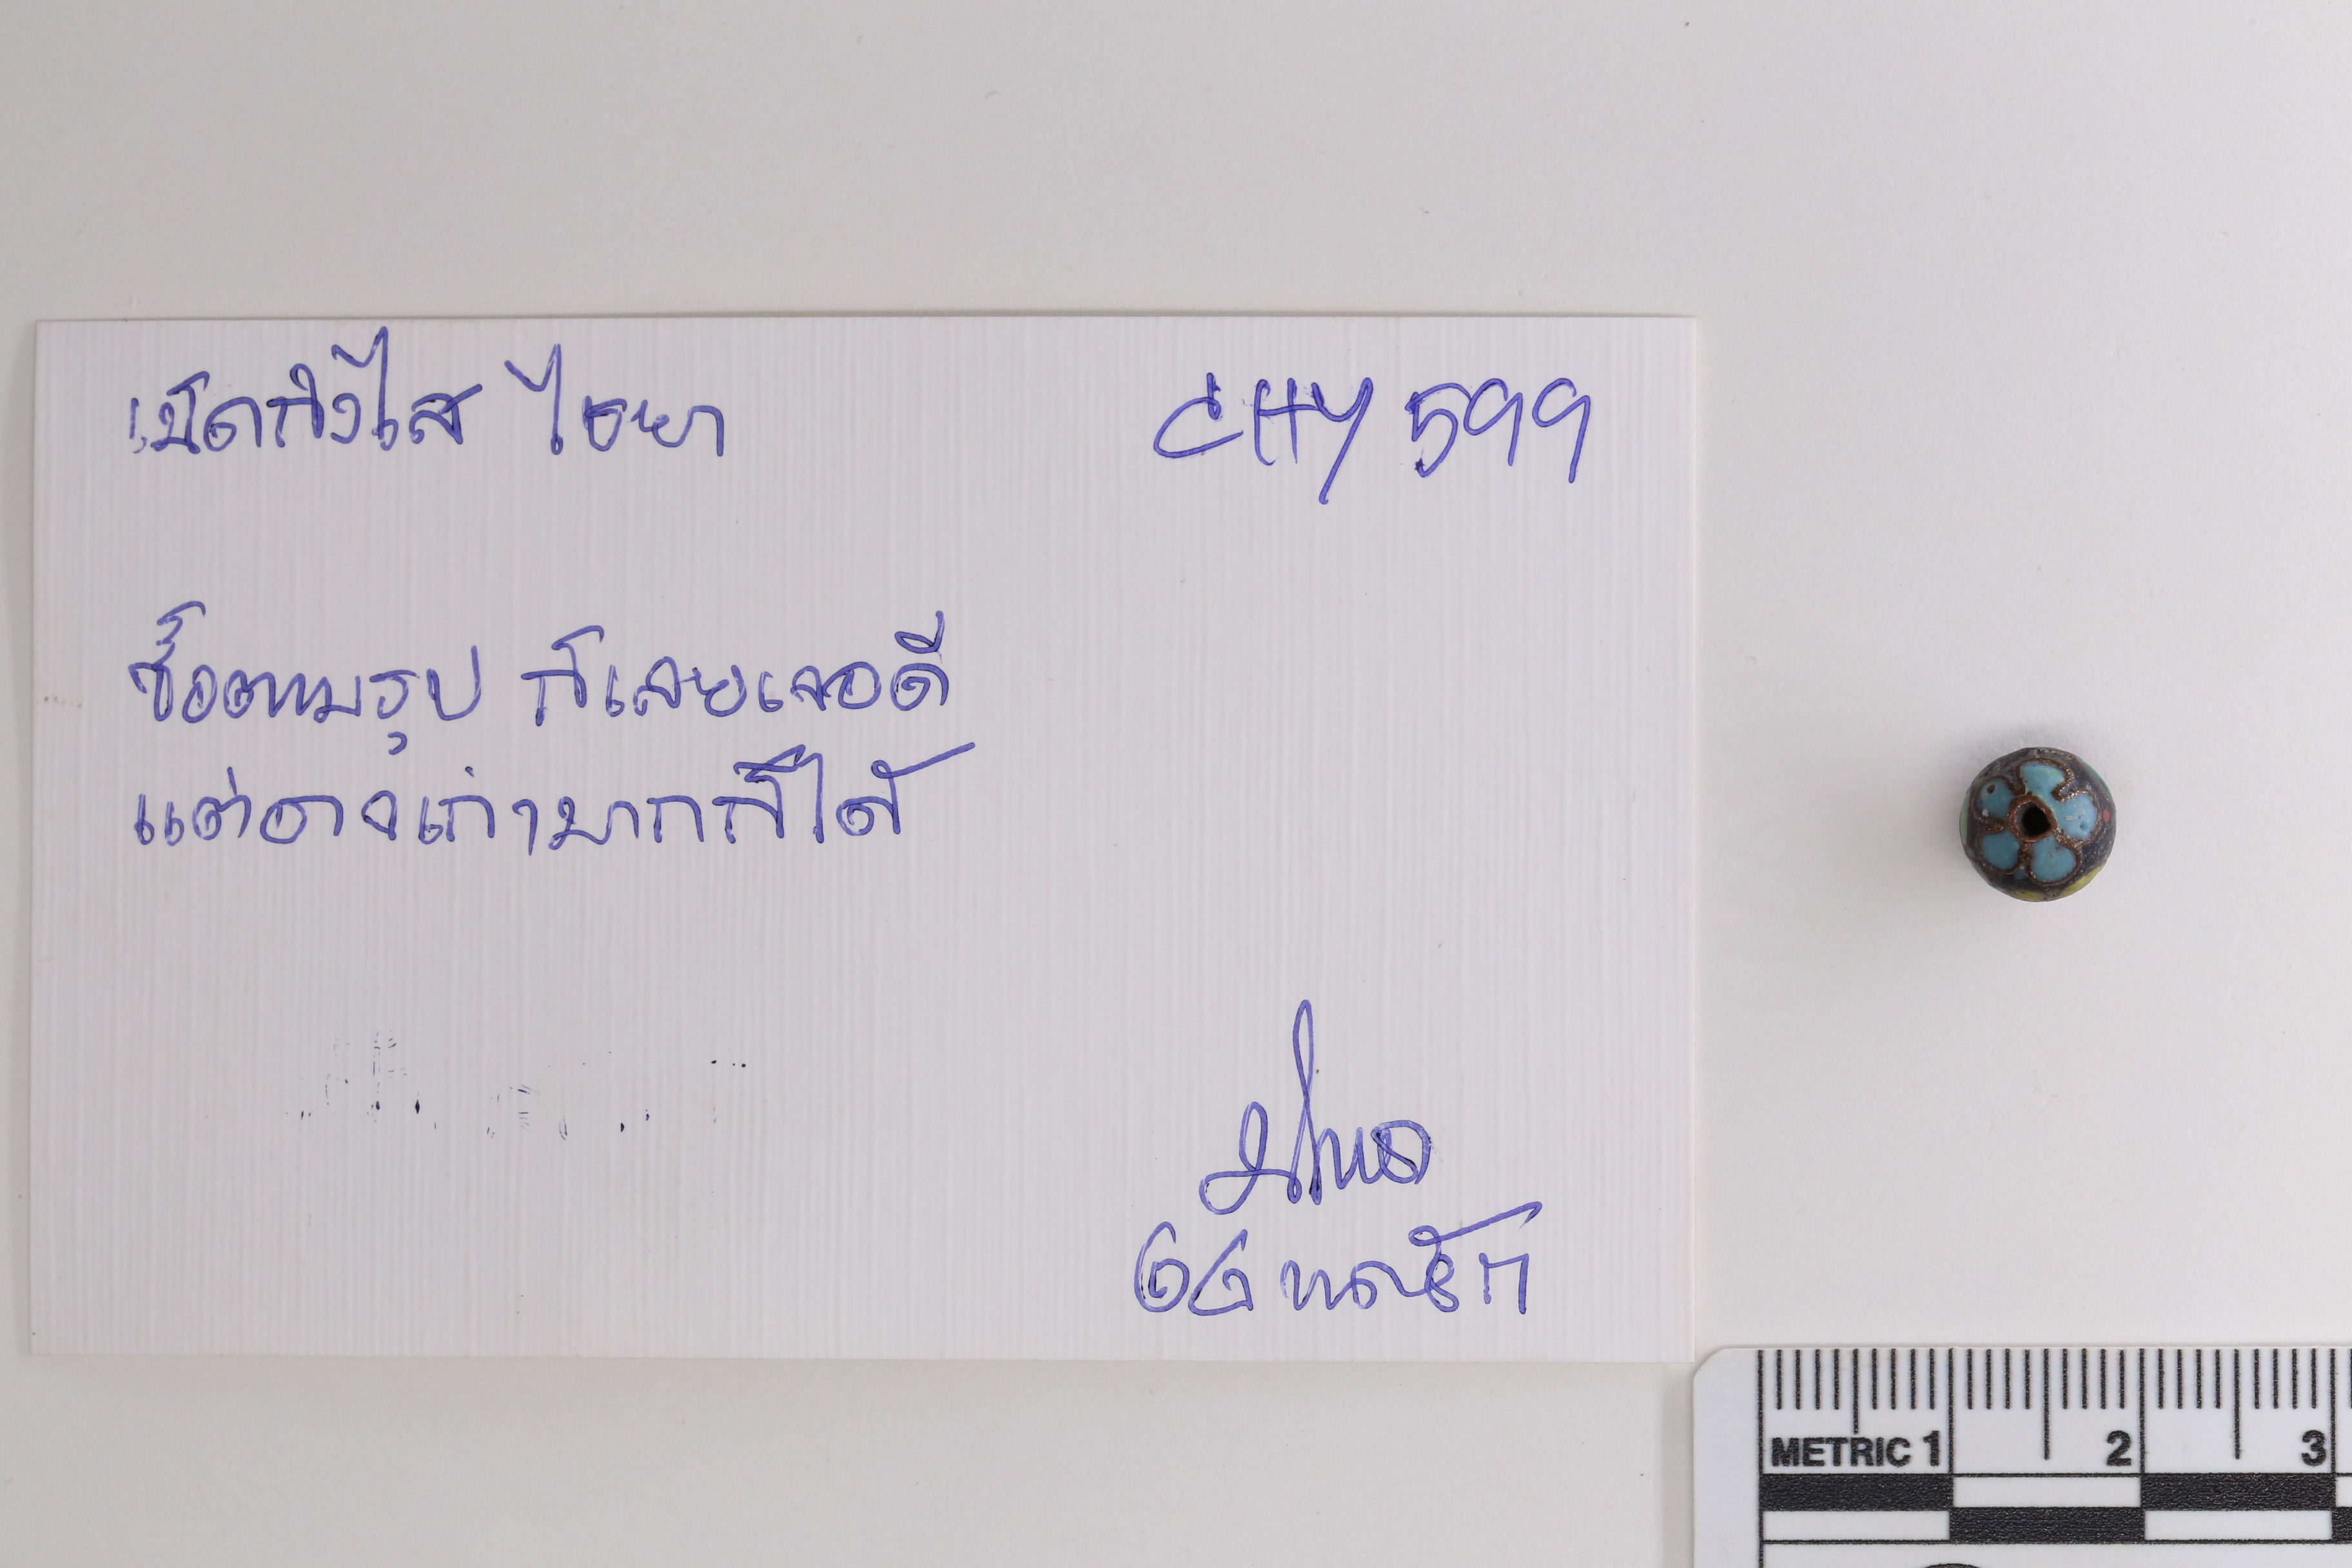 เม็ดกังไส ไชยา
CHY 599
ซื้อตามรูป ก็เลยเจอดี
แต่อาจเก่ามากก็ได้
METRIC 1 2 3